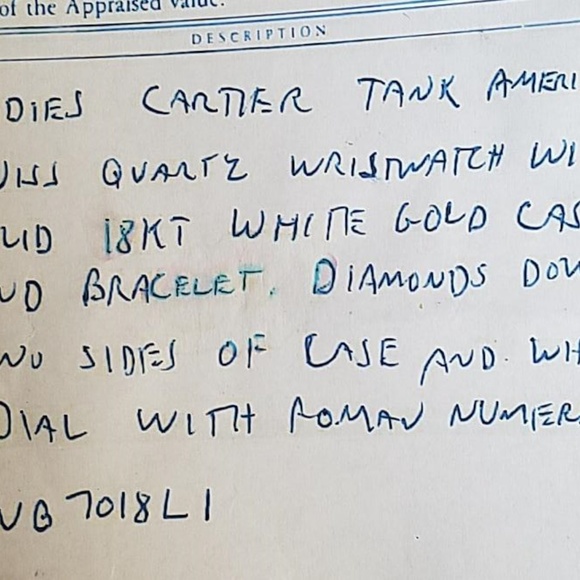 of the Appraised Value.
DESCRIPTION
DIES CARTIER TANK AMERI
ISS QUARTZ WRISTWATCH WI
LID 18KT WHITE GOLD CAS
ND BRACELET. DIAMONDS DOW
SIDES OF CASE AND WH
DIAL WITH ROMAN NUMER
WB7018L1